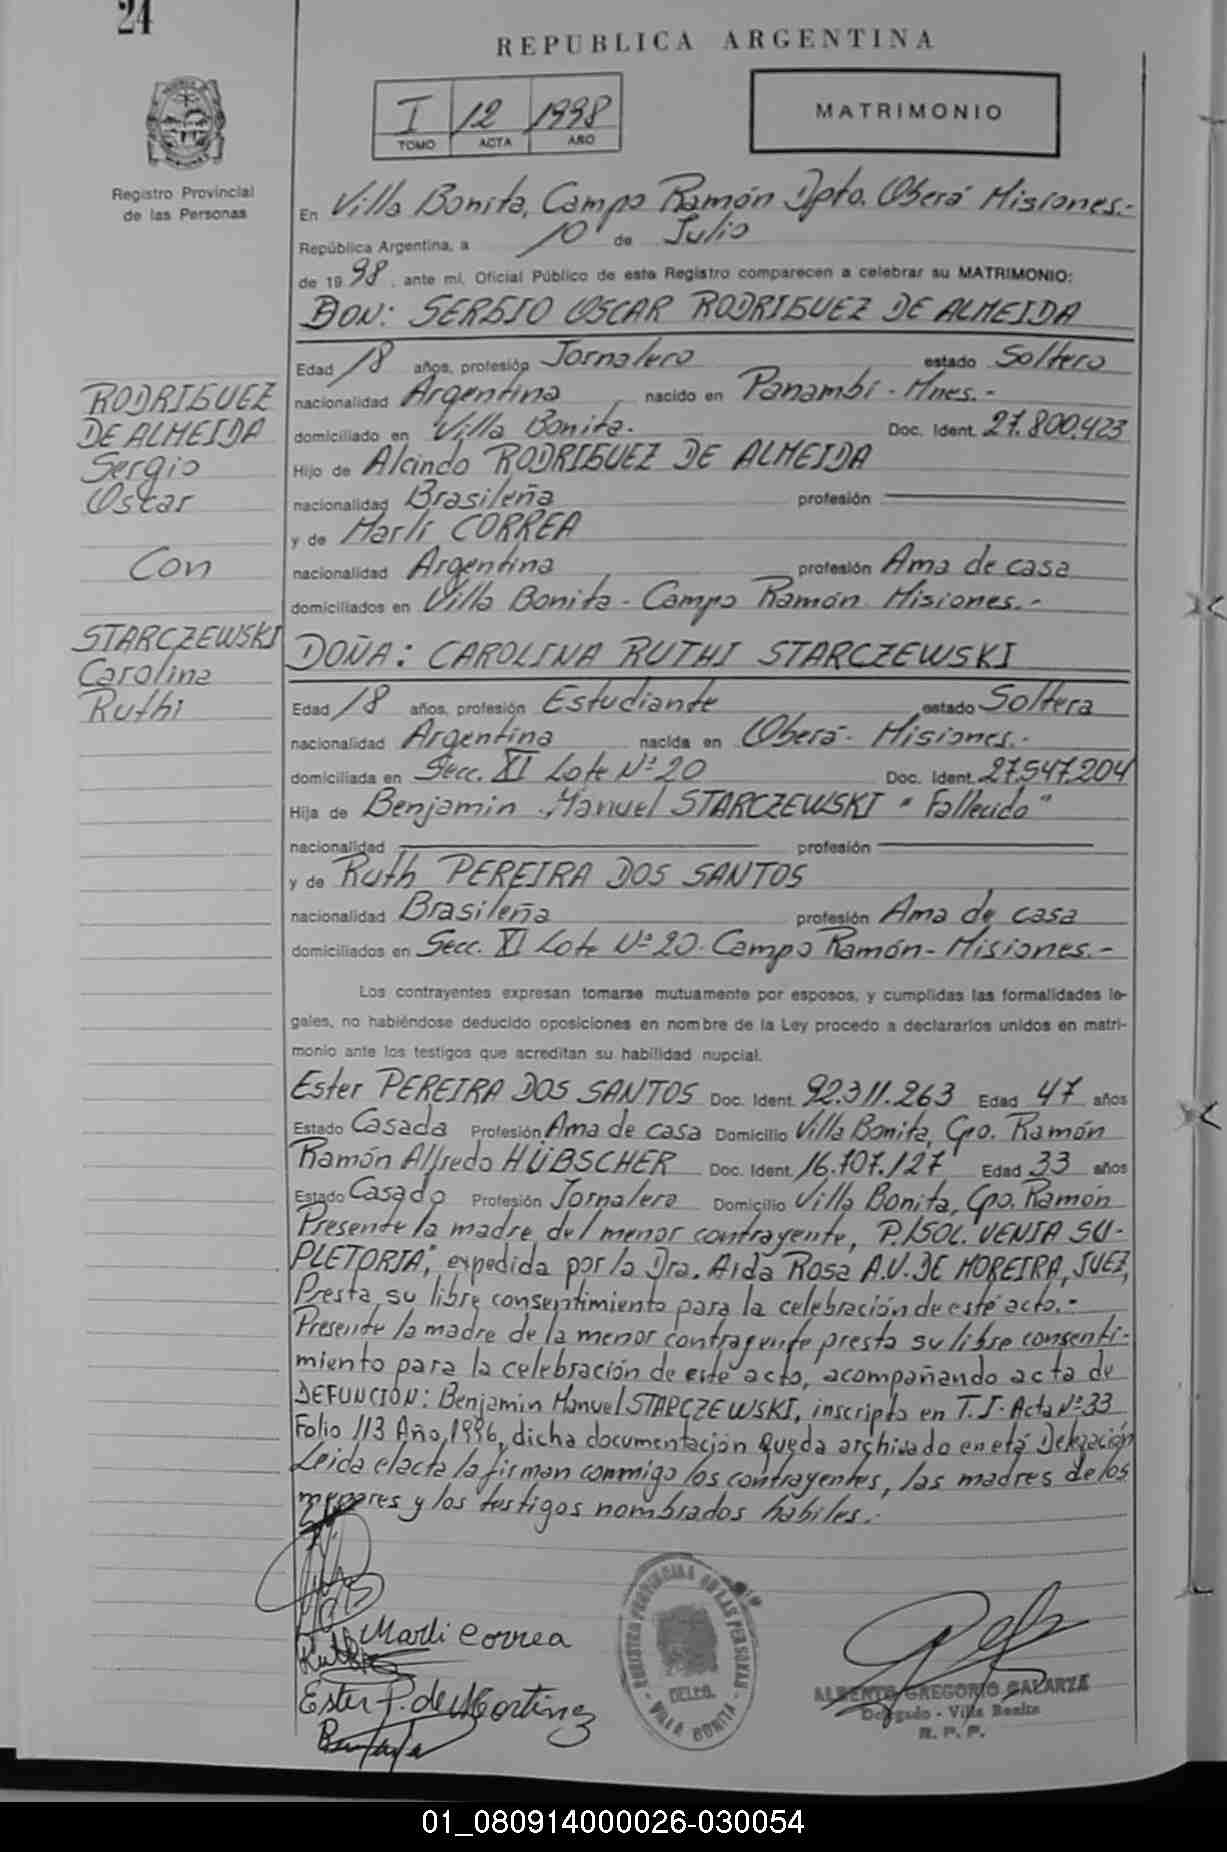 24
REPUBLICA ARGENTINA
I 12 1998
TOMO ACTA AÑO
MATRIMONIO
Registro Provincial
de las Personas
En Villa Bonita, Campo Ramón Dpto. Oberá Misiones.-
República Argentina, a 10 de Julio
de 1998, ante mi, Oficial Público de este Registro comparecen a celebrar su MATRIMONIO:
DON: SERGIO OSCAR RODRIGUEZ DE ALMEIDA
Edad 18 años, profesión Jornalero estado Soltero
nacionalidad Argentina nacido en Panambí - Mnes.-
domiciliado en Villa Bonita.- Doc. Ident. 27.800.423
Hijo de Alcindo RODRIGUEZ DE ALMEIDA
nacionalidad Brasileña profesión
y de Marli CORREA
nacionalidad Argentina profesión Ama de casa
domiciliados en Villa Bonita - Campo Ramón Misiones.-
RODRIGUEZ
DE ALMEIDA
Sergio
Oscar
Con
STARCZEWSKI
Carolina
Ruthi
DOÑA: CAROLINA RUTHI STARCZEWSKI
Edad 18 años, profesión Estudiante estado Soltera
nacionalidad Argentina nacida en Oberá - Misiones.-
domiciliada en Secc. XI Lote Nº 20 Doc. Ident. 27.547.204
Hija de Benjamin Manuel STARCZEWSKI "Fallecido"
nacionalidad profesión
y de Ruth PEREIRA DOS SANTOS
nacionalidad Brasileña profesión Ama de casa
domiciliados en Secc. XI Lote Nº 20 - Campo Ramón - Misiones.-
Los contrayentes expresan tomarse mutuamente por esposos, y cumplidas las formalidades le-
gales, no habiéndose deducido oposiciones en nombre de la Ley procedo a declararlos unidos en matri-
monio ante los testigos que acreditan su habilidad nupcial.
Ester PEREIRA DOS SANTOS Doc. Ident. 92.311.263 Edad 47 años
Estado Casada Profesión Ama de casa Domicilio Villa Bonita, Cpo. Ramón
Ramón Alfredo HÜBSCHER Doc. Ident. 16.707.127 Edad 33 años
Estado Casado Profesión Jornalero Domicilio Villa Bonita, Cpo. Ramón
Presente la madre del menor contrayente, P./SOL. VENIA SU-
PLETORIA", expedida por la Dra. Aida Rosa A.V. DE MOREIRA, JUEZ,
Presta su libre consentimiento para la celebración de este acto.-
Presente la madre de la menor contrayente presta su libre consenti-
miento para la celebración de este acto, acompañando acta de
DEFUNCION: Benjamin Manuel STARCZEWSKI, inscripto en T.I. Acta Nº 33
Folio 113 Año 1996, dicha documentación queda archivado en etá Delegación
Leida el acta la firman conmigo los contrayentes, las madres de los
menores y los testigos nombrados hábiles.-
Marli Correa
Ester P. de Martinez
REGISTRO PROVINCIAL DE LAS PERSONAS
DELEG.
VILLA BONITA
ALBERTO GREGORIO GALARZA
Delegado - Villa Bonita
R. P. P.
01_080914000026-030054